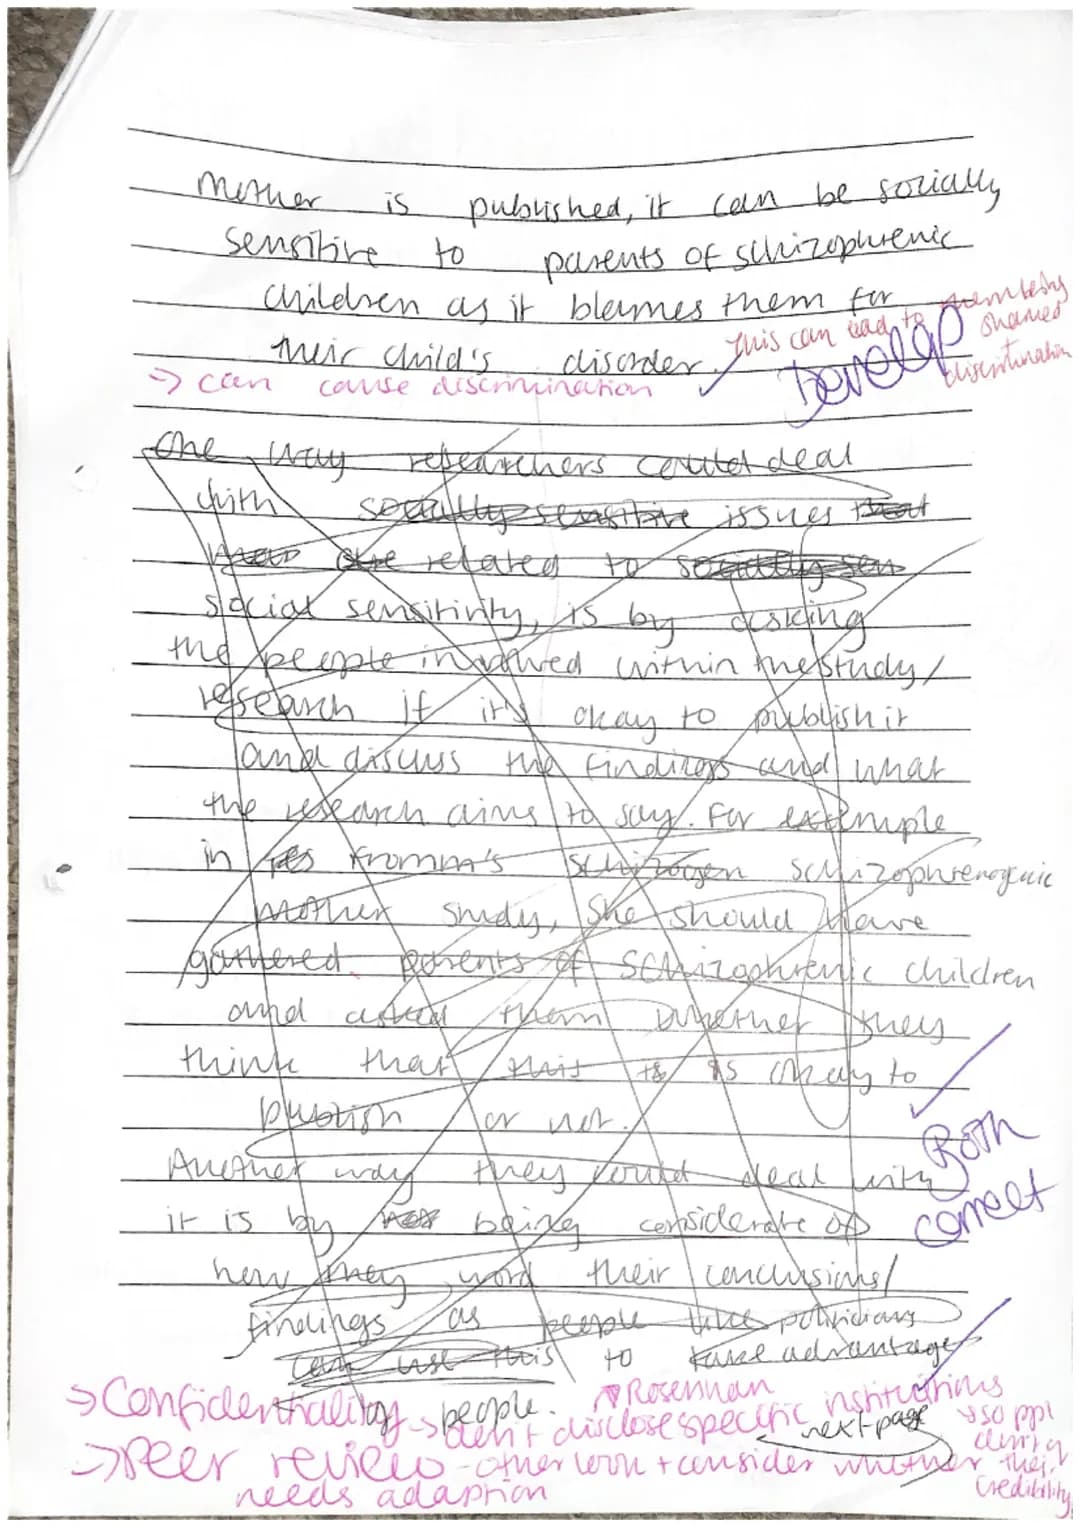 Mother is published, it can be socially
sensitive to parents of schizophrenic
children as it blames them for
their child's disorder.
This can lead to them being
shamed
discrimination
Develop
→ can cause discrimination
One way researchers could deal
with socially sensitive issues that
are related to socially sen
social sensitivity, is by asking
the people involved within the study/
research if it's okay to publish it
and discuss the findings and what
the research aims to say. For example
in Fromm's schizogen schizophrenogenic
mother study, she should have
gathered parents of schizophrenic children
and asked them whether they
think that this is is okay to
publish or not.
Another way they could deal with
it is by being considerate of
how they word their conclusions/
findings as people like politicians
can use this to take advantage
of people.
Both
correct
next page
→ Confidentiality → don't disclose specific institutions
Rosenhan
so ppl
don't
their
credibility
→ Peer review - other look + consider whether
needs adaption